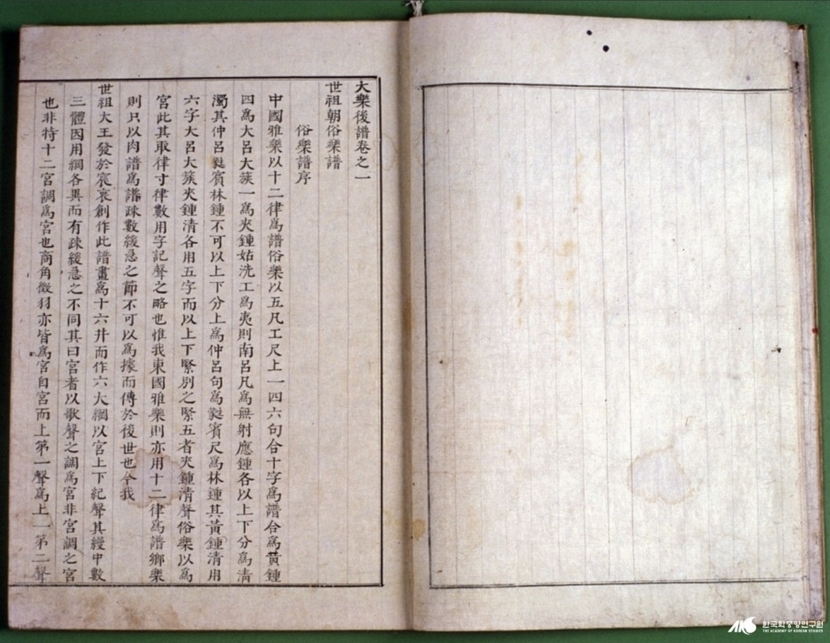 大樂後譜卷之一
世祖朝俗樂譜
俗樂譜序
中國雅樂以十二律爲譜俗樂以五凡工尺上一四六句合十字爲譜合爲黃鍾
四爲大呂大簇一爲夾鍾姑洗工爲夷則南呂凡爲無射應鍾各以上下分爲淸
濁其仲呂蕤賓林鍾不可以上下分上爲仲呂句爲蕤賓尺爲林鍾其黃鍾淸用
六字大呂大簇夾鍾淸各用五字而以上下緊別之緊五者夾鍾淸聲俗樂以爲
宮此其取律寸律數用字記聲之略也惟我東國雅樂則亦用十二律爲譜鄕樂
則只以肉譜爲譜疎數緩急之節不可以爲據而傳於後世也今我
世祖大王發於宸衷創作此譜畫爲十六井而作六大綱以宮上下紀聲其緩中數
三體因用綱各異而有疎緩急之不同其曰宮者以歌聲之調爲宮非宮調之宮
也非特十二宮調爲宮也商角徵羽亦皆爲宮自宮而上第一聲爲上一第二聲
한국학중앙연구원
THE ACADEMY OF KOREAN STUDIES